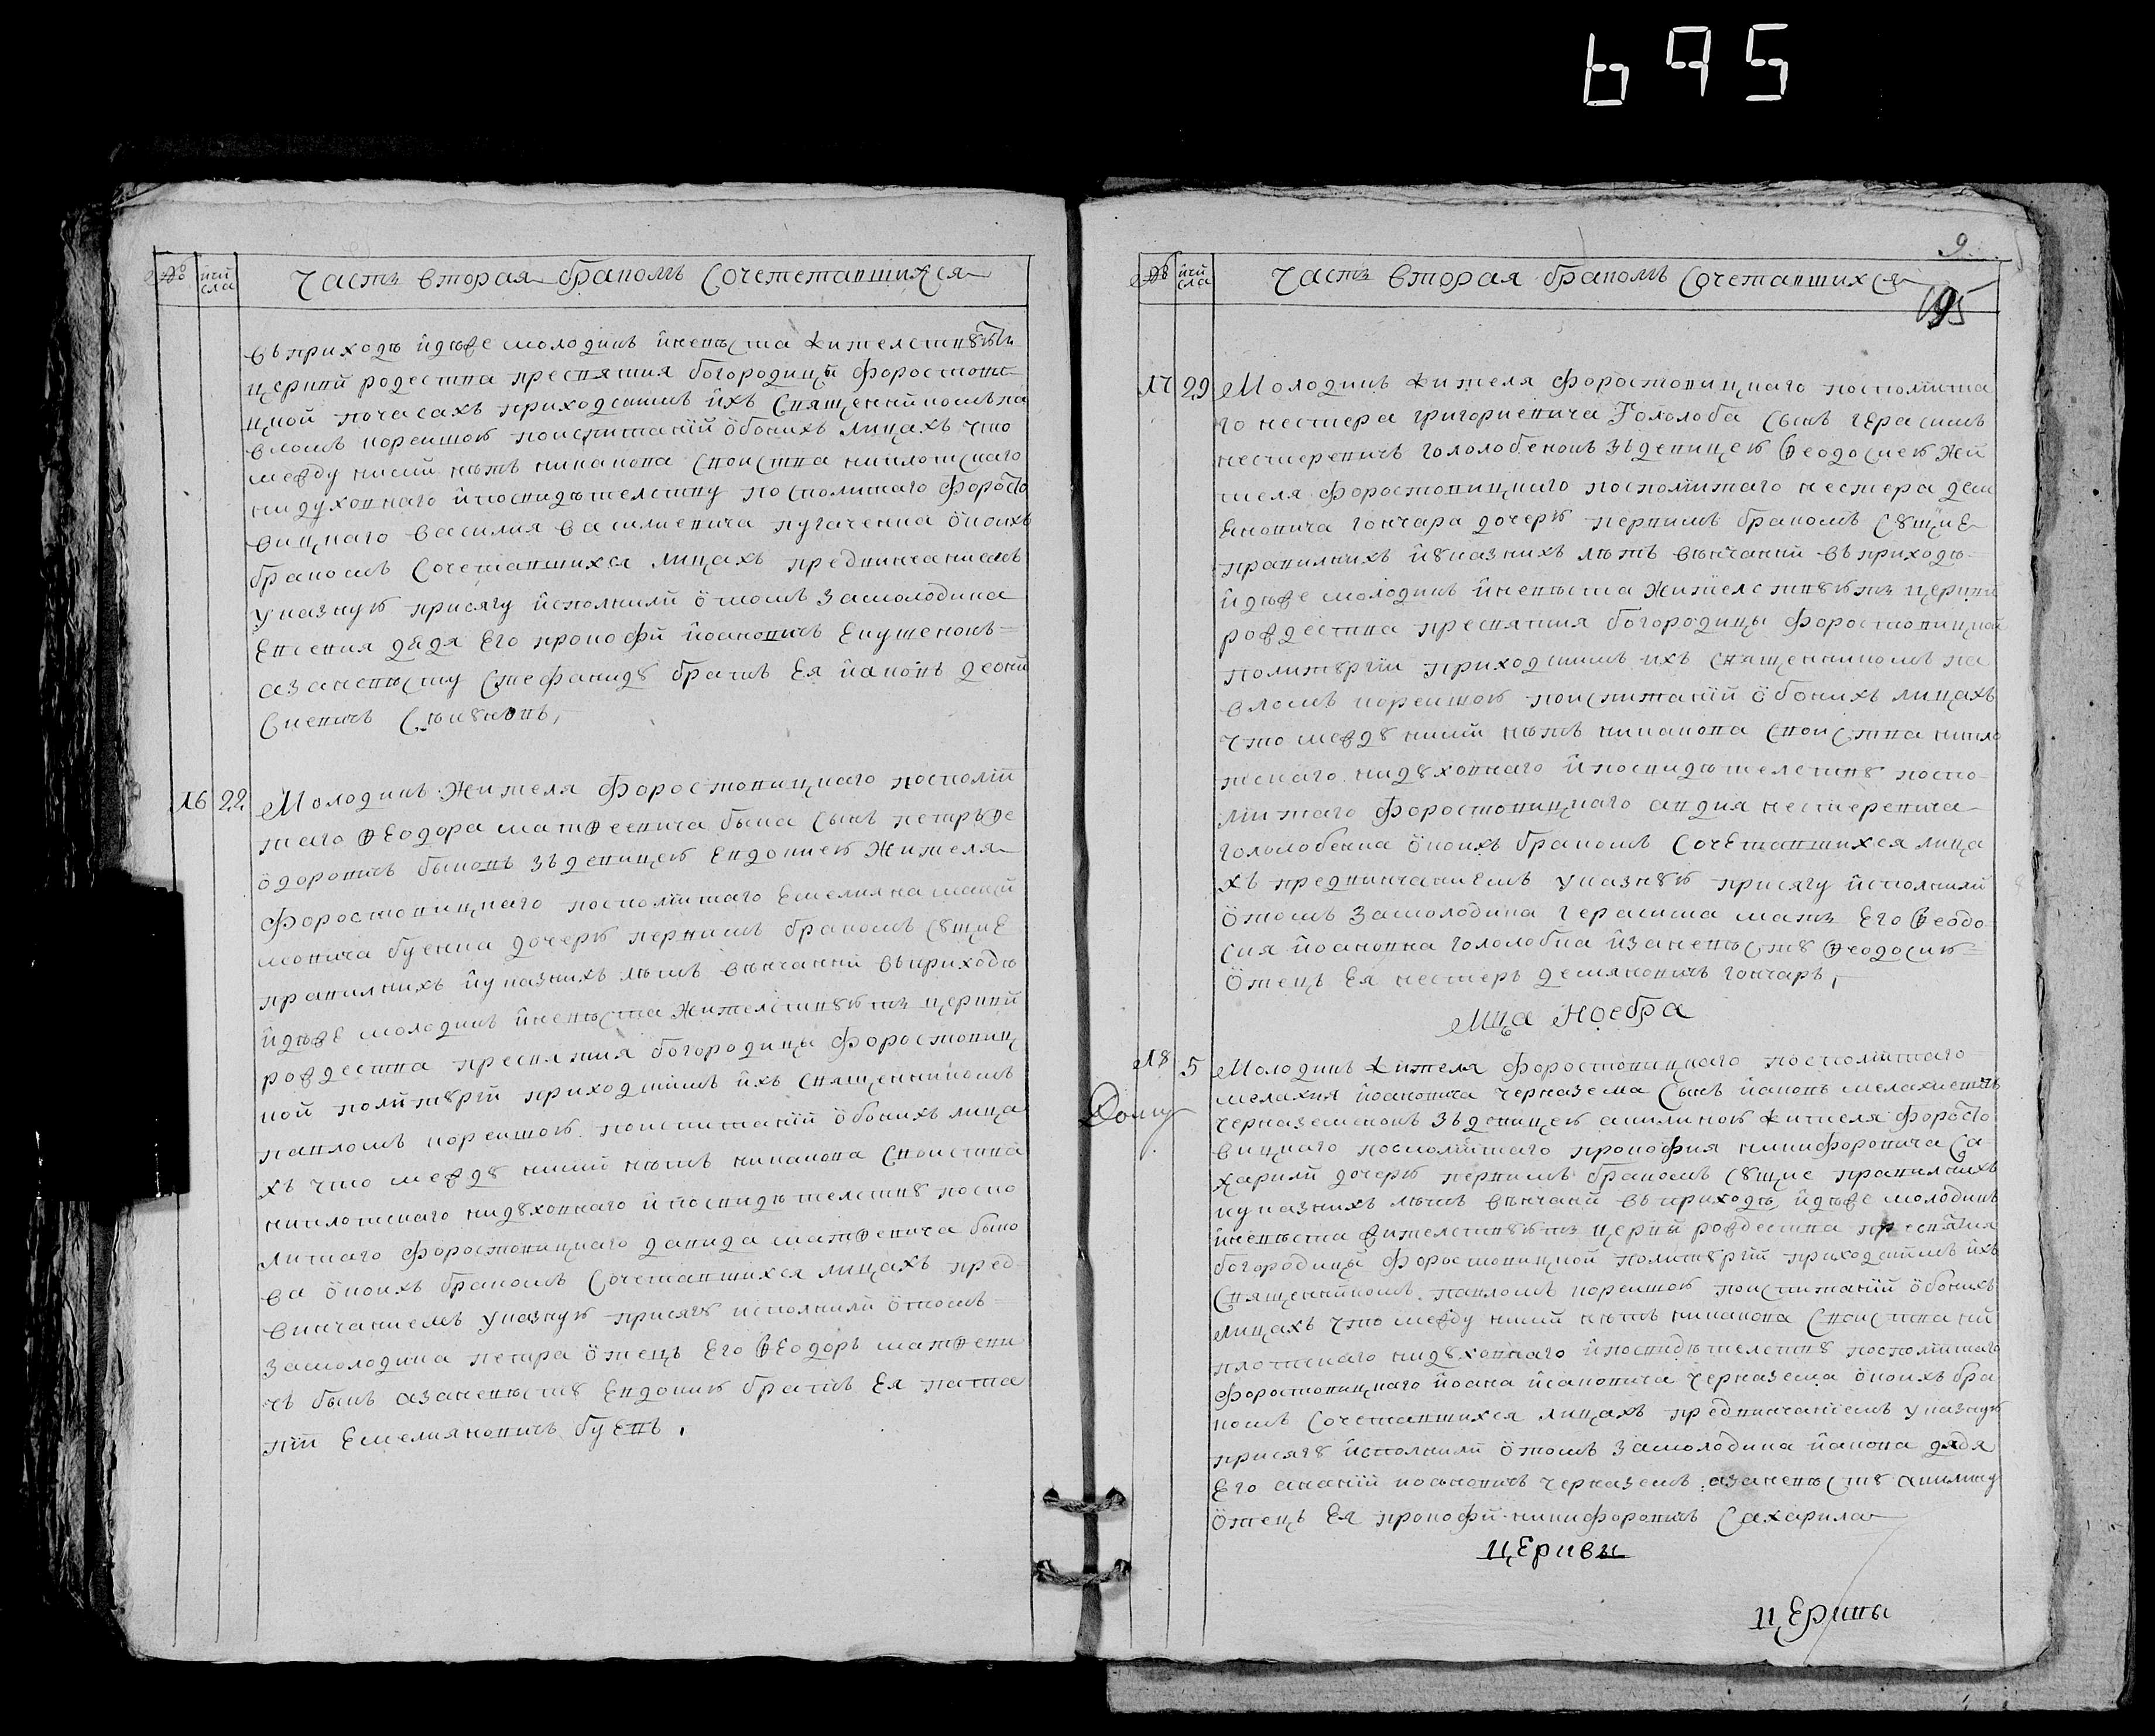 695
№ числа Часть вторая браком Сочететавшихся
въ приходѣ идѣже молодикъ иневѣста жителствуютъ
церкви родества пресвятия богородицы форостови
цкой почасахъ приходскимъ ихъ Священникомъ па
вломъ корейшою поиспитаніи о обоихъ лицахъ что
между ними нѣтъ никакова Своиства ниплотскаго
ни духовнаго и посвидѣтелству посполитаго Форосто
вицкаго василия василиевича пугаченка о коихъ
бракомъ Сочетавшихся лицахъ предвинчаниемъ
указную присягу исполнили о томъ за молодика
Евсения дядя Его прокофи иоановичъ
а за невѣсту Стефаниду братъ Ея иаковъ

16 22 Молодикъ Жителя Форостовицкаго посполи
таго Ѳеодора матѳеевича бика Сынъ петръ Ѳе
одоровичъ биковъ зъ девицею Евдокиею Жителя
Форостовицкаго посполитаго Емелияна
дочерю первимъ бракомъ Сущие
правилнихъ и указнихъ лѣтъ вѣнчани въ приходѣ
идѣже молодикъ иневѣста Жителствуютъ церкви
рождества пресвятия богородицы Форостовиц
кой политургіи приходскимъ ихъ Священникомъ
павломъ корейшою поиспитаніи о обоихъ лица
хъ что между ними нѣтъ никакова Своиства
ниплотскаго нидуховнаго и посвидѣтелству поспо
литаго Форостовицкаго данида матѳевича бико
ва о коихъ бракомъ Сочетавшихся лицахъ пред
винчаниемъ указную присягу исполнили о томъ
за молодика петра отецъ Его Ѳеодоръ матѳеви
чъ бикъ а за невѣсту Евдокию братъ Ея
Емелияновичъ буевъ
9
695
№ числа Часть вторая браком Сочетавшихся
17 29 Молодикъ Жителя Форостовицкаго посполита
го нестера григориевича Гололоба Сынъ Герасимъ
нестеревичъ гололобенокъ зъ девицею Ѳеодосиею Жи
теля Форостовицкаго посполитаго нестера дем
яновича гончара дочерю первимъ бракомъ Сущие
правилнихъ и указнихъ лѣтъ вѣнчани въ приходѣ
идѣже молодикъ иневѣста Жителствуютъ церкви
рождества пресвятия богородицы Форостовицкой
политургіи приходскимъ ихъ Священникомъ па
вломъ корейшою поиспитаніи о обоихъ лицахъ
что между ними нѣтъ никакова Своиства нипло
тскаго нидуховнаго и посвидѣтелству поспо
литаго Форостовицкаго андия нестеревича
гололобенка о коихъ бракомъ Сочетавшихся лица
хъ предвинчаниемъ указную присягу исполнили
о томъ за молодика Герасима мать Его Ѳеодо
сия иоановна гололобка и за невѣсту Ѳеодосию
отецъ Ея нестеръ демяновичъ гончаръ,
Мца Ноебра
18 5 Молодикъ Жителя Форостовицкаго посполитаго
мелахия иоановича черказема Сынъ иаковъ
черказемокъ зъ девицею акилиною Жителя Форосто
вицкаго посполитаго прокофия никифоровича Са
харили дочерю первимъ бракомъ Сущие правилнихъ
и указнихъ лѣтъ вѣнчани въ приходѣ идѣже молодикъ
иневѣста Жителствуютъ церкви рождества пресвятия
богородицы Форостовицкой политургіи приходскимъ ихъ
Священникомъ павломъ корейшою поиспитаніи о обоихъ
лицахъ что между ними нѣтъ никакова Своиства ни
плотскаго нидуховнаго и посвидѣтелству посполитаго
Форостовицкаго иоана иоановича Черказема о коихъ бра
комъ Сочетавшихся лицахъ предвинчаниемъ указную
присягу исполнили о томъ за молодика иакова дядя
Его ананій иоановичъ черказемъ а за невѣсту акилину
отецъ Ея прокофи никифоровичъ Сахарила
церкви
церкви